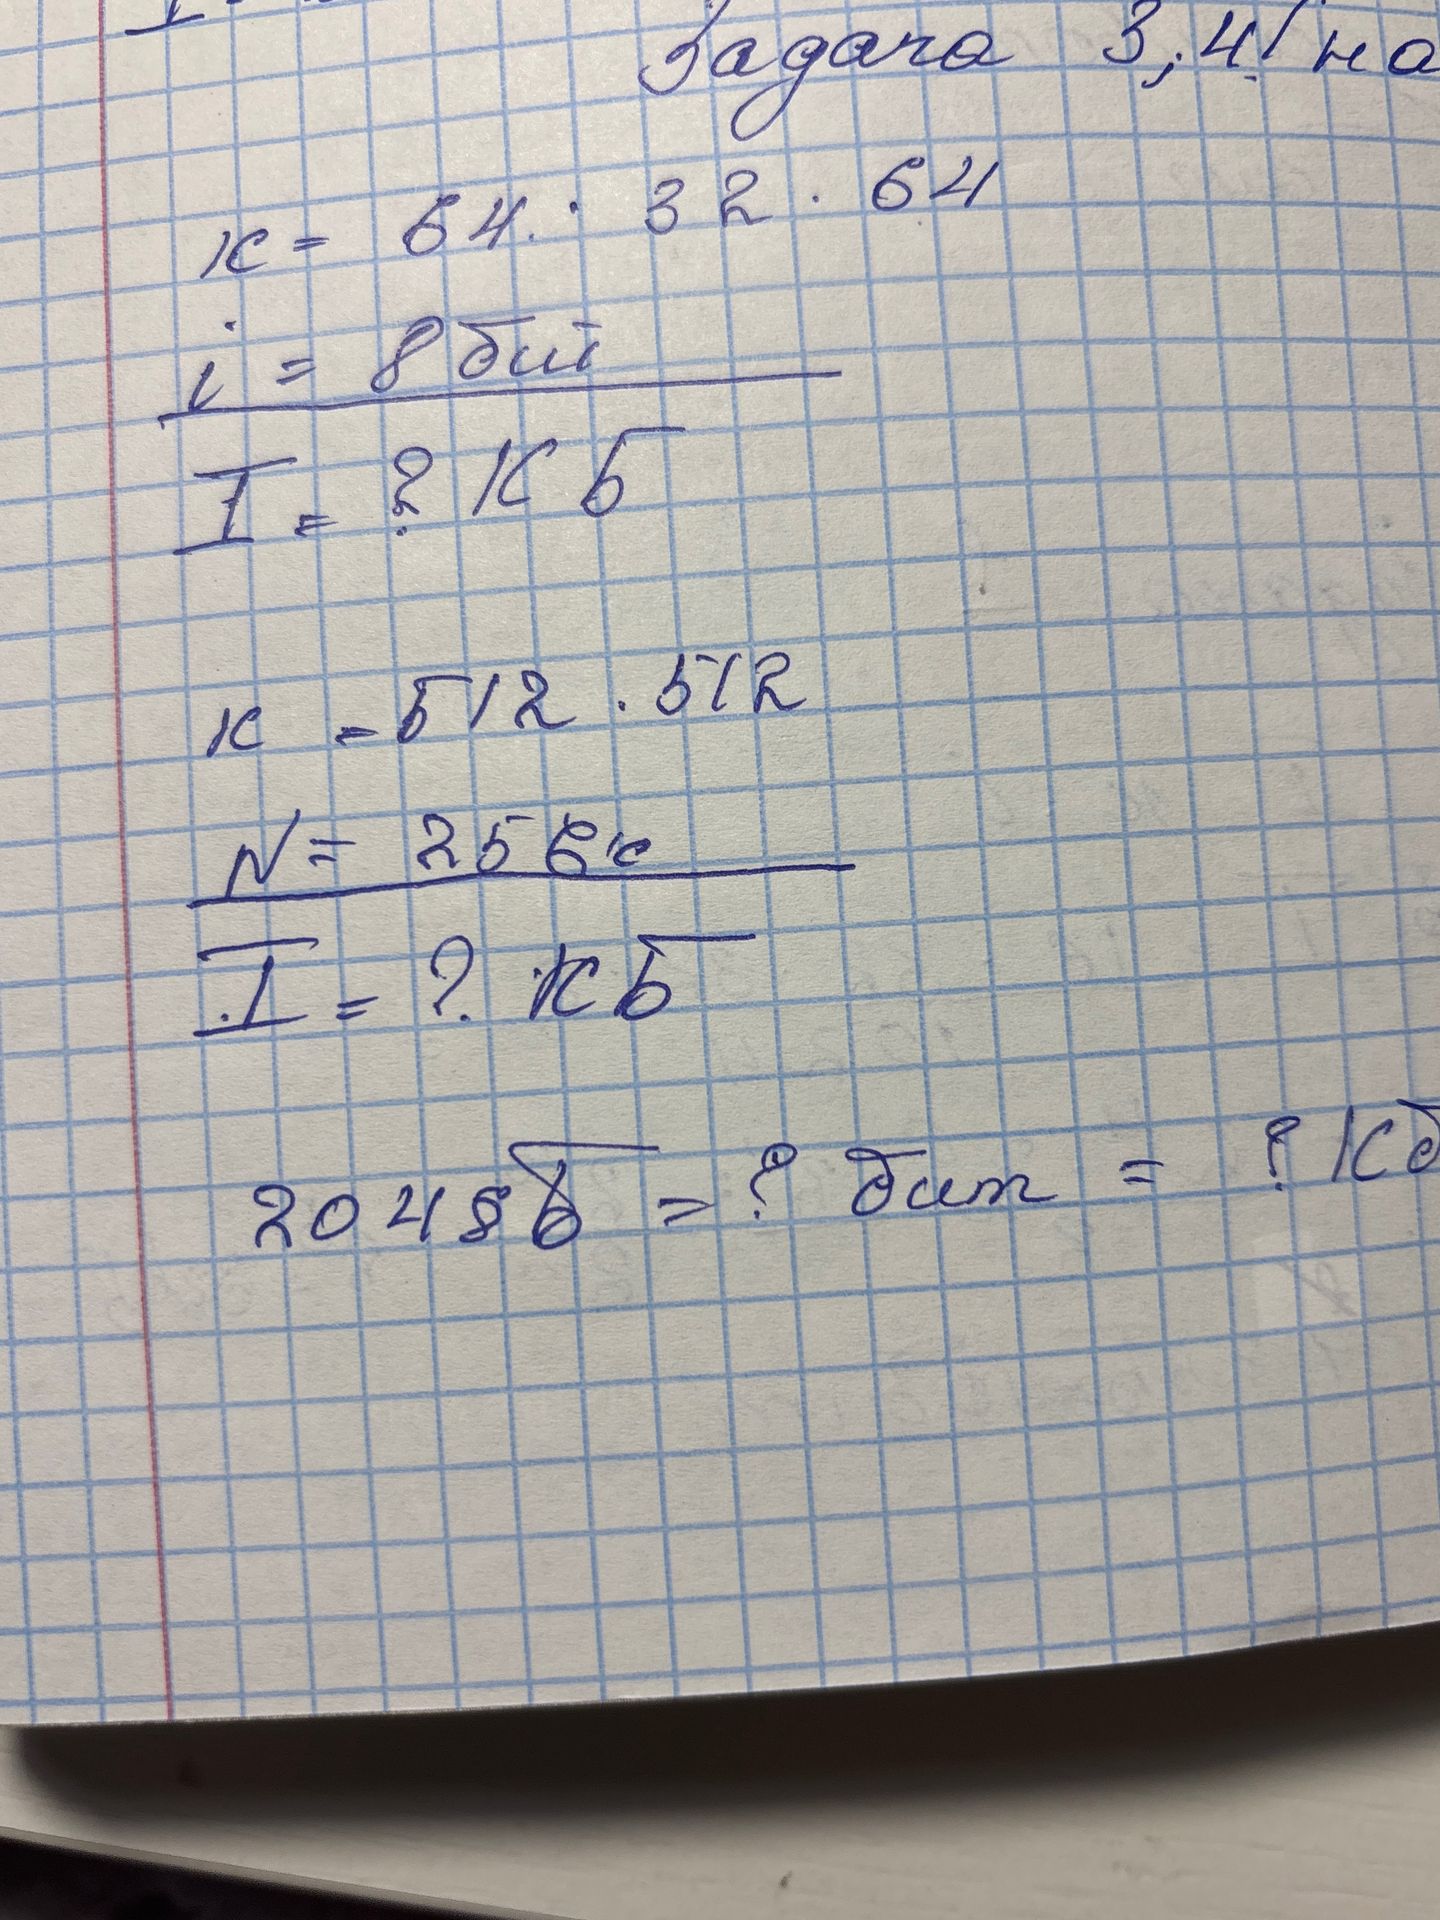 Задача 3,4 на
к = 64 · 32 · 64
i = 8 бит
I = ? Кб
к = 512 · 512
N = 256
I = ? Кб
2048б = ? бит = ? Кб